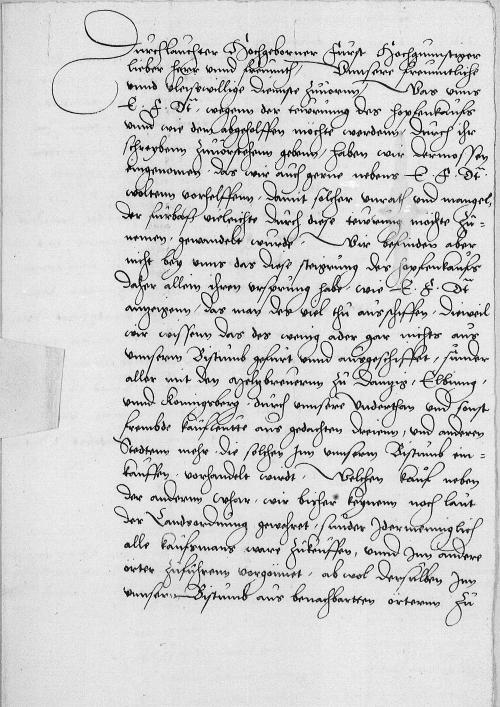 Durchlauchter Hochgeborner Furst Hochgunstiger
lieber herr vnnd freunnth, Vnnsere freunntliche
vnnd vleisewillige diennste zuuornn, Was vnns
E. F. Dt. wegenn der tewrung des hopfenkaufs
vnnd wie dem abgeholffen mochte werdenn, durch ihr
schreybenn zuuorstehenn gebenn, haben wir dermossen
eingenomen, das wir auch gerne nebens E. F. Dt.
woltenn vorhelffenn, damit solcher vnrath vnd mangel,
der furbas vielnichte durch diese tewrung mochte zu-
nemen, gewandelt wurde, Wir befinden aber
nicht bey vnns das diese steigrung des hopfenkaufs
daher allein ihren vrsprung habe, wie E. F. Dt.
anzeigenn, das man des viel thu ausschiffen, dieweil
wir wissenn das des wenig ader gar nichts aus
vnnserm Bistumb gefurt vnnd ausgeschiffet, sunder
alles mit den Meltzbreuernn zu Dantzig, Elbing,
vnnd Konnigsberg, durch vnnsere Vnderthan vnd sonst
frembde kauffleutte aus gedachten dreienn, vnd anderen
Stedtenn mehr, die solchen Inn vnnserm Bistumb ein-
kauffen, vorhandelt wirdt, Welchen kauf neben
der anderm whar, wir bisher keynem noch laut
der Landsordnung gewehret, sunder Idermenniglich
alle kaufmans ware zukeuffen, vnnd Inn andere
orter zufuhrenn vorgonnet, ab wol derselben Inn
vnnser Bistumb aus benachbartten orternn zu